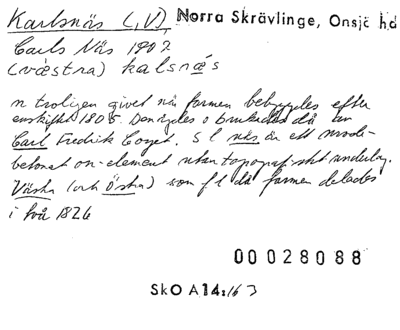 Karlsnäs (, V), Norra Skrävlinge, Onsjö hd
Carls Näs 1802
(västra) kalsnæs
n troligen givet när farmen bebyggdes efter
enskiftet 1805. Den ägdes o brukades då av
Carl Fredrik Coyet. S l näs är ett mode-
betonat on-element utan topografiskt underlag.
Västra (och Östra) som f l då farmen delades
i två 1826
00028088
SkO A14:163